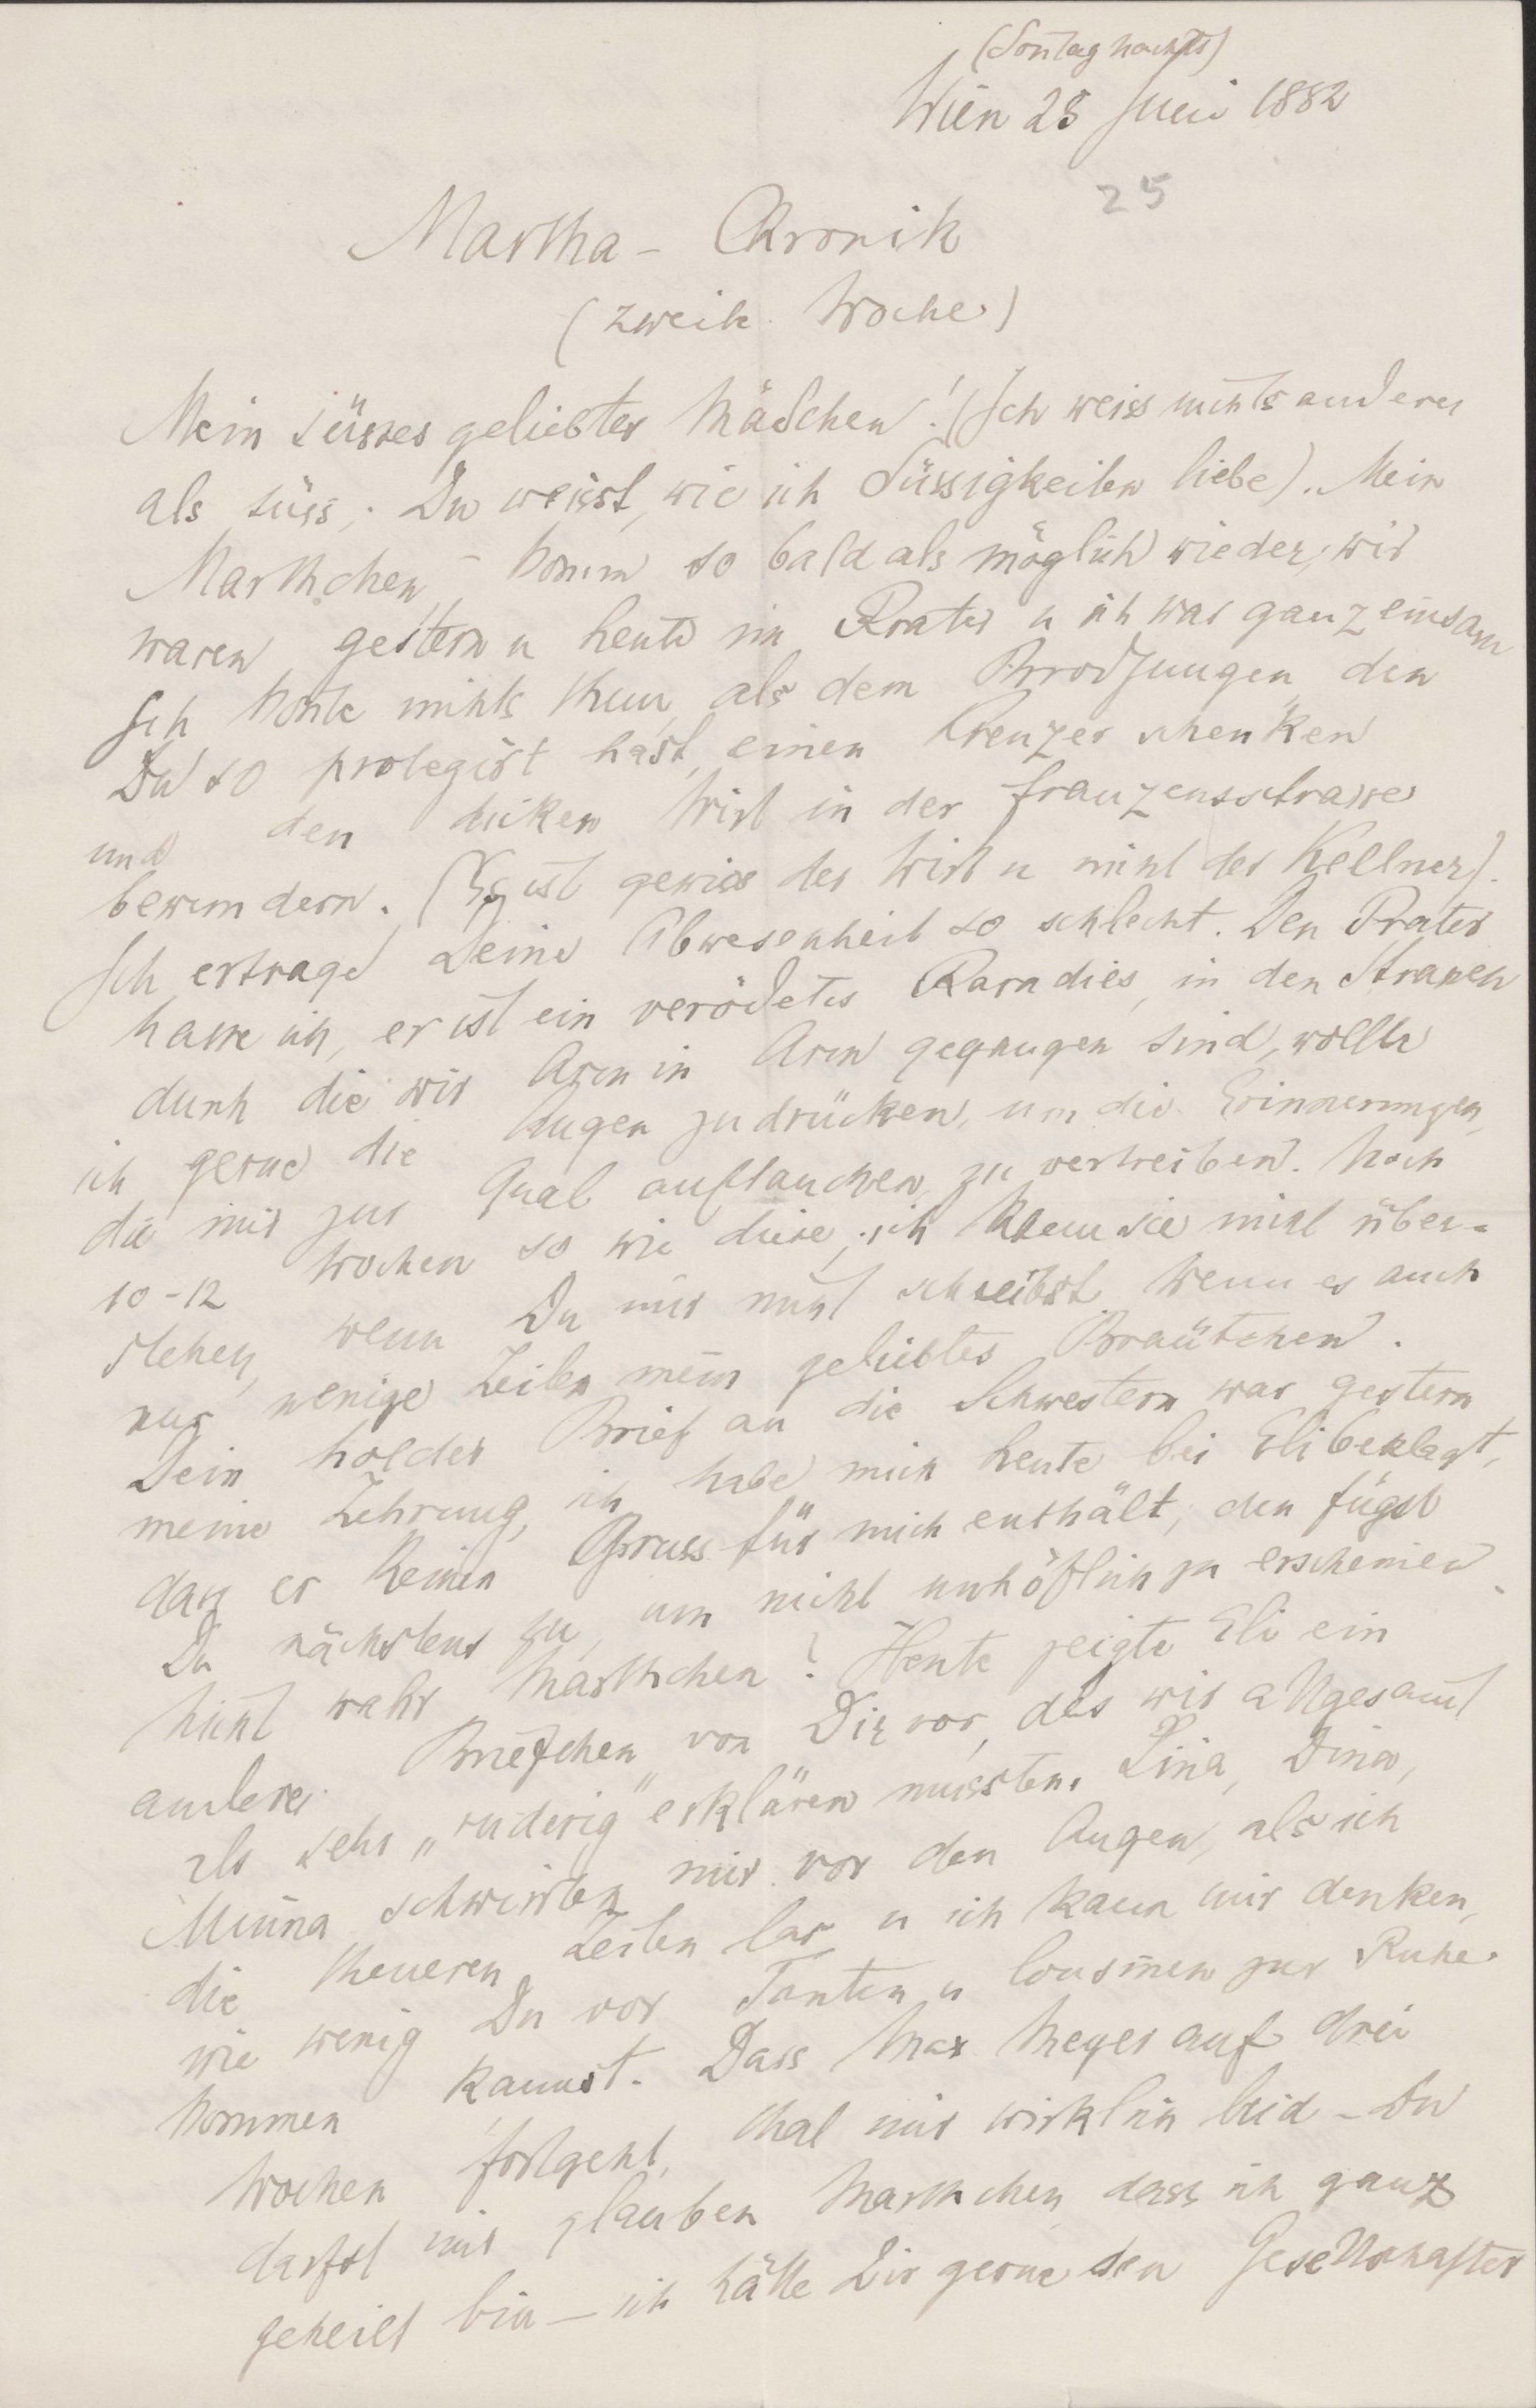 (Sontag nachts)
Wien 25 Juni 1882
25
Martha - Chronik
(zweite Woche)
Mein süsses geliebtes Mädchen! (Ich weiss nichts anderes
als süss, Du weisst, wie ich Süssigkeiten liebe). Mein
Marthchen, komm so bald als möglich wieder, wir
waren gestern u heute im Prater u ich war ganz einsam
Ich konte nichts thun, als dem Brodjungen, den
Du so protegirt hast, einen Kreuzer schenken
und den dicken Wirt in der Franzensstrasse
bewundern. (Es ist gewiss der Wirt u nicht der Kellner).
Ich ertrage Deine Abwesenheit so schlecht. Den Prater
hasse ich, er ist ein verödetes Paradies, in den Strassen
durch die wir Arm in Arm gegangen sind, wollte
ich gerne die Augen zudrücken, um die Erinnerungen,
die mir zur Qual auftauchen, zu vertreiben. Noch
10-12 Wochen so wie diese, ich kann sie nicht über-
stehen, wenn Du mir nicht schreibst, wenn es auch
nur wenige Zeilen, mein geliebtes Bräutchen.
Dein holder Brief an die Schwestern war gestern
meine Zehrung, ich habe mich heute bei Eli beklagt,
dass er keinen Gruss für mich enthält, den fügst
Du nächstens zu, um nicht unhöflich zu erscheinen
Nicht wahr, Marthchen? Heute zeigte Eli ein
anderes Briefchen von Dir vor, das wir allgesamt
als sehr „ruderig" erklären mussten. Lina, Dina,
Minna schwirrten mir vor den Augen, als ich
die theueren Zeilen las u ich kann mir denken,
wie wenig Du vor Tanten u Cousinen zur Ruhe
kommen kannst. Dass Max Meyer auf drei
Wochen fortgeht, that mir wirklich leid - Du
darfst mir glauben Marthchen, dass ich ganz
geheilt bin - ich hätte Dir gerne den Gesellschafter